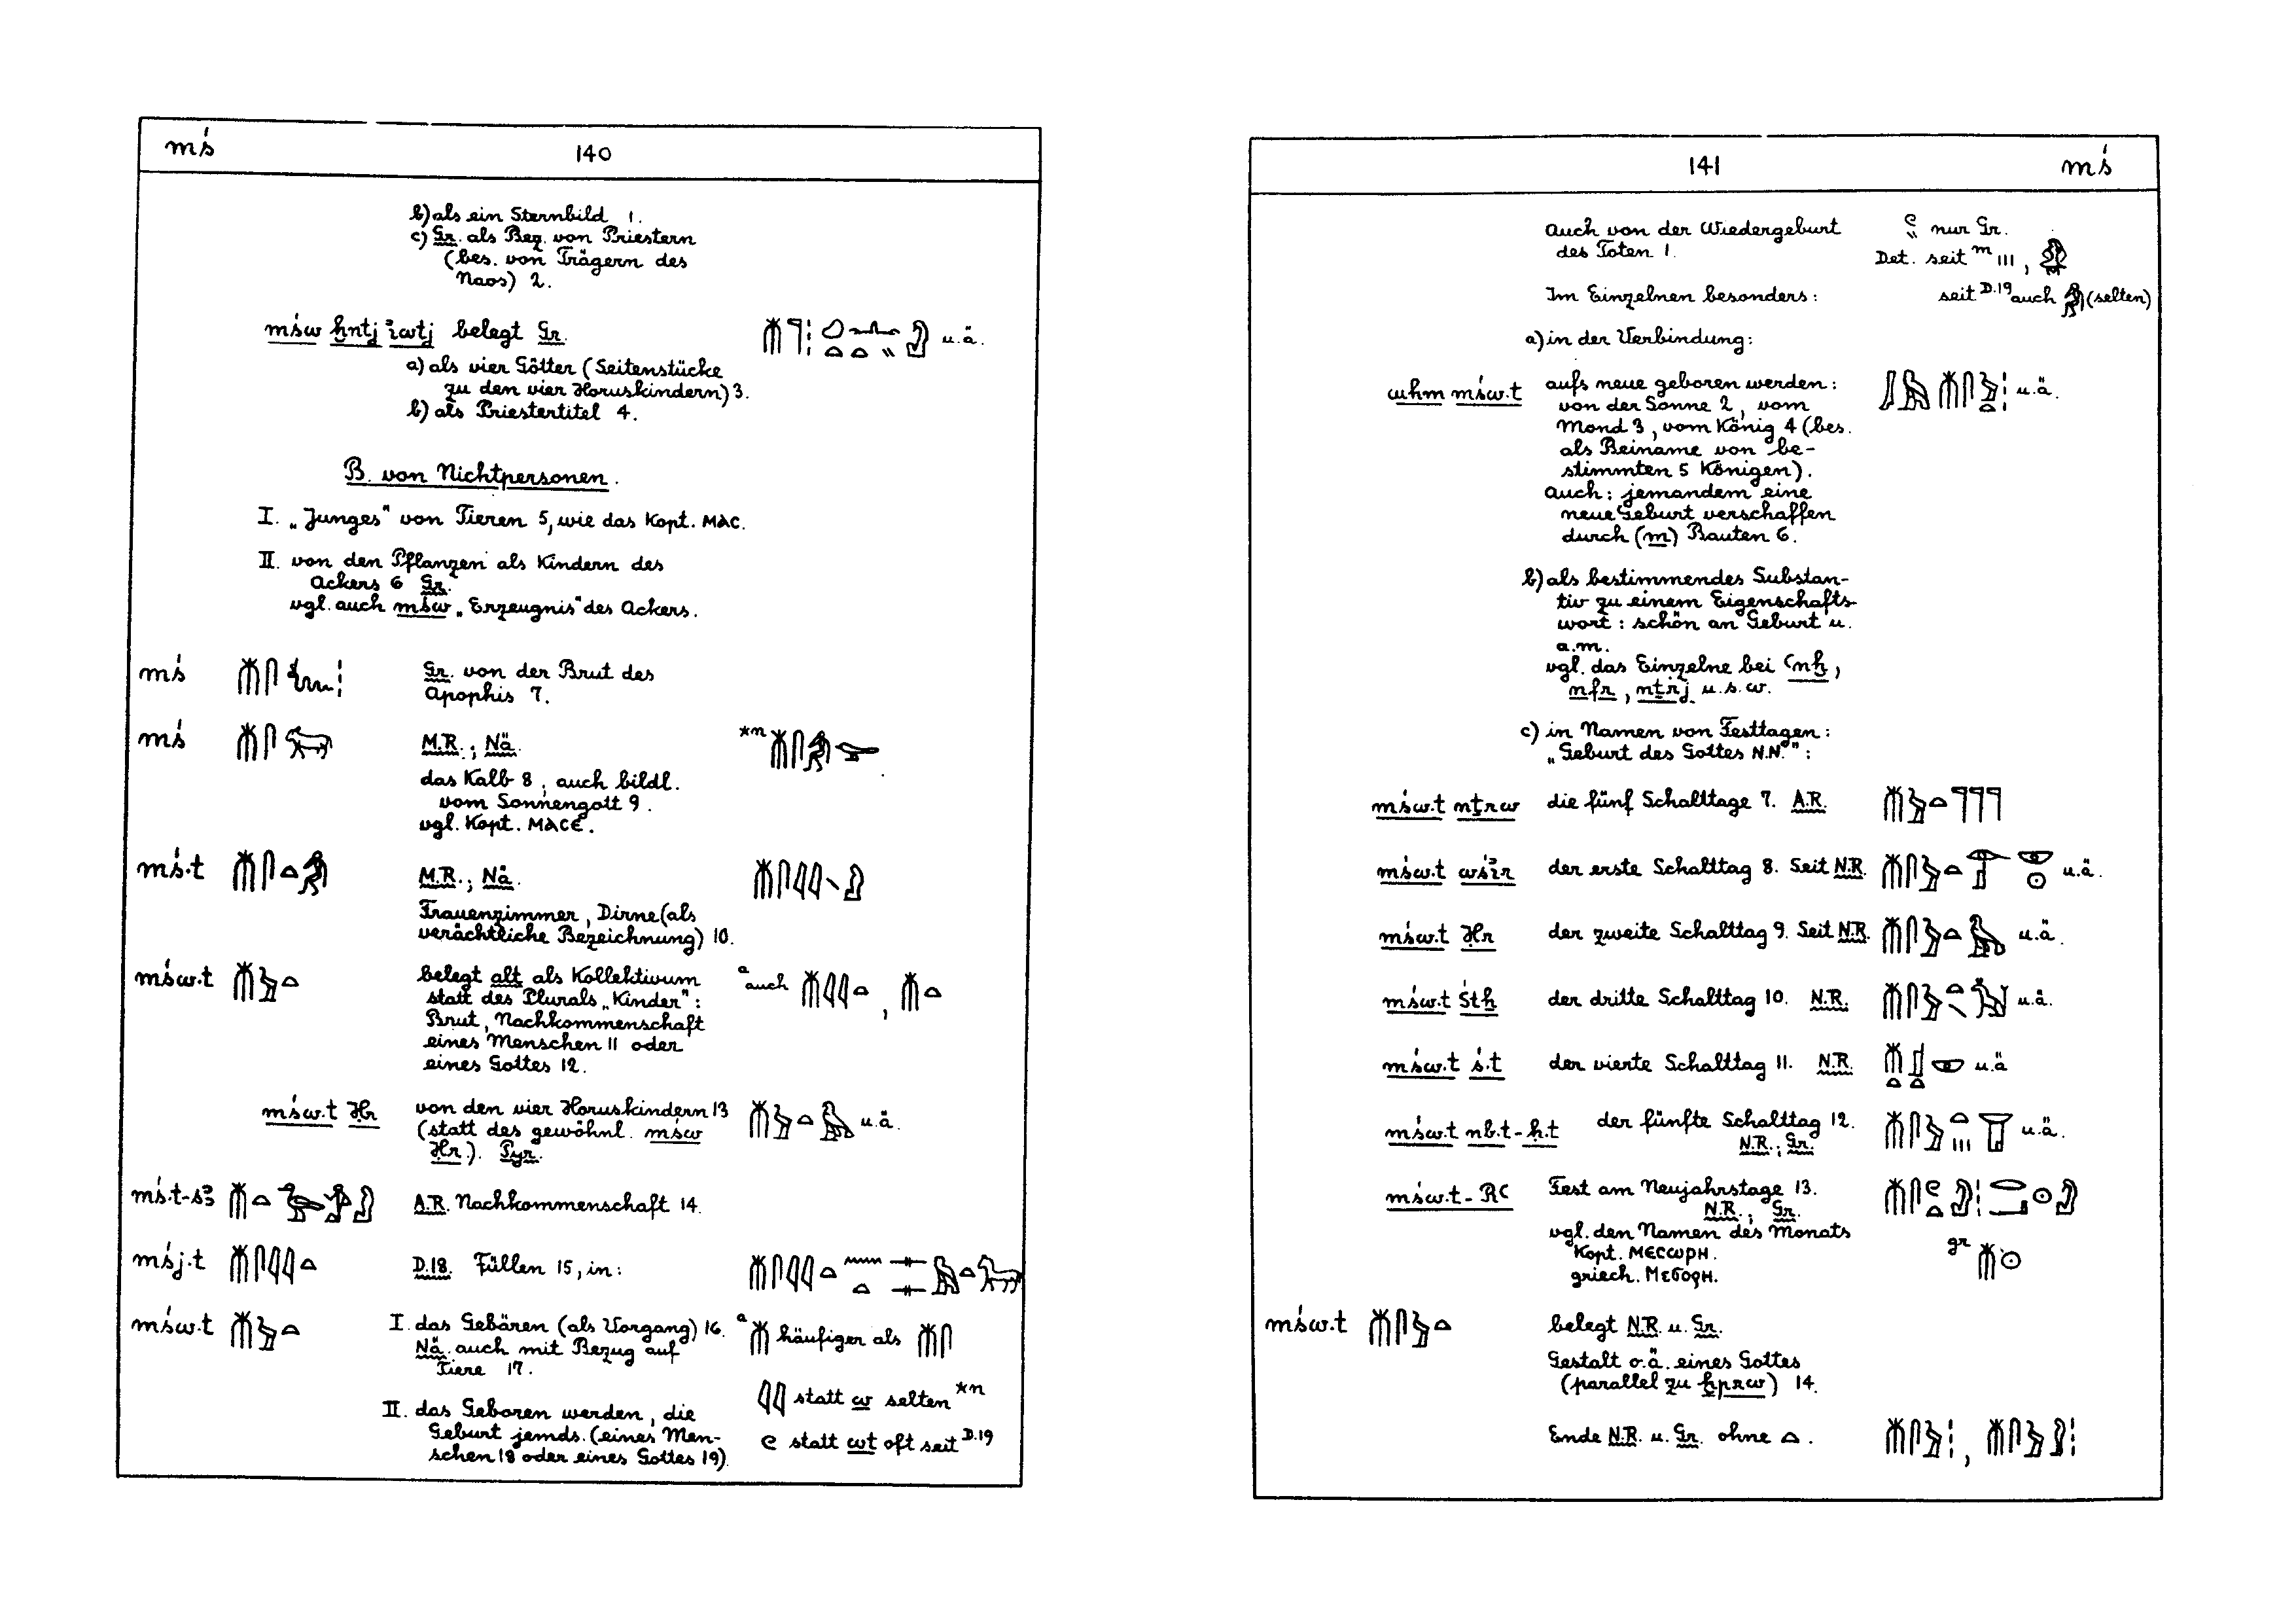 mś
140
b) als ein Sternbild 1.
c) Gr. als Bez. von Priestern
(bes. von Trägern des
Naos) 2.
mśw ḫntj ꞽwtj belegt Gr. u.ä.
a) als vier Götter (Seitenstücke
zu den vier Horuskindern) 3.
b) als Priestertitel 4.
B. von Nichtpersonen.
I. „Junges" von Tieren 5, wie das Kopt. ⲙⲁⲥ.
II. von den Pflanzen als Kindern des
Ackers 6 Gr.
vgl. auch mśw „Erzeugnis" des Ackers.
mś Gr. von der Brut des
Apophis 7.
mś M.R.; Nä. *n
das Kalb 8, auch bildl.
vom Sonnengott 9.
vgl. Kopt. ⲙⲁⲥⲉ.
mś.t M.R.; Nä.
Frauenzimmer, Dirne (als
verächtliche Bezeichnung) 10.
mśw.t belegt alt als Kollektivum a auch ,
statt des Plurals „Kinder":
Brut, Nachkommenschaft
eines Menschen 11 oder
eines Gottes 12.
mśw.t Ḥr von den vier Horuskindern 13 u.ä.
(statt des gewöhnl. mśw
Ḥr). Pyr.
mś.t-sꜣ A.R. Nachkommenschaft 14.
mśj.t D.18. Füllen 15, in:
mśw.t I. das Gebären (als Vorgang) 16. a häufiger als
Nä. auch mit Bezug auf
Tiere 17.
statt w selten *n
II. das Geboren werden, die
Geburt jemds. (eines Men-
schen 18 oder eines Gottes 19).
statt wt oft seit D.19
141
mś
Auch von der Wiedergeburt nur Gr.
des Toten 1. Det. seit m III,
Im Einzelnen besonders: seit D.19 auch (selten)
a) in der Verbindung:
wḥm mśw.t aufs neue geboren werden: u.ä.
von der Sonne 2, vom
Mond 3, vom König 4 (bes.
als Beiname von be-
stimmten 5 Königen).
Auch: jemandem eine
neue Geburt verschaffen
durch (m) Bauten 6.
b) als bestimmendes Substan-
tiv zu einem Eigenschafts-
wort: schön an Geburt u.
a.m.
vgl. das Einzelne bei ꜥnḫ,
nfr, nṯrj u.s.w.
c) in Namen von Festtagen:
„Geburt des Gottes N.N.":
mśw.t nṯrw die fünf Schalttage 7. A.R.
mśw.t wśꞽr der erste Schalttag 8. Seit N.R. u.ä.
mśw.t Ḥr der zweite Schalttag 9. Seit N.R. u.ä.
mśw.t Śtḫ der dritte Schalttag 10. N.R. u.ä.
mśw.t ś.t der vierte Schalttag 11. N.R. u.ä
mśw.t nb.t-ḥ.t der fünfte Schalttag 12. u.ä.
N.R.; Gr.
mśw.t-Rꜥ Fest am Neujahrstage 13.
N.R.; Gr.
vgl. den Namen des Monats
Kopt. ⲙⲉⲥⲱⲣⲏ. gr
griech. Μεσορη.
mśw.t belegt N.R. u. Gr.
Gestalt o.ä. eines Gottes
(parallel zu ḫprw) 14.
Ende N.R. u. Gr. ohne . ,